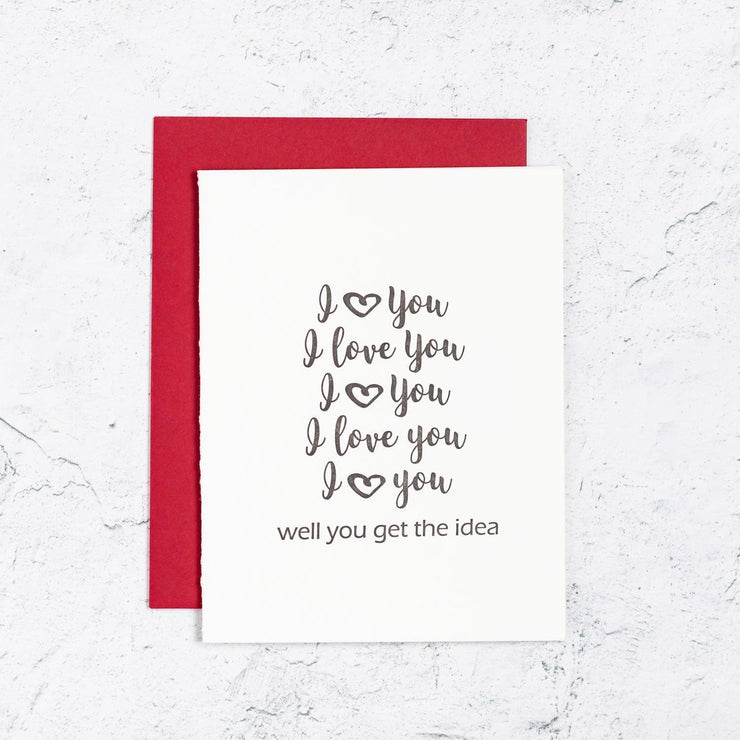 I ♡ You
I love You
I ♡ You
I love you
I ♡ you
well you get the idea